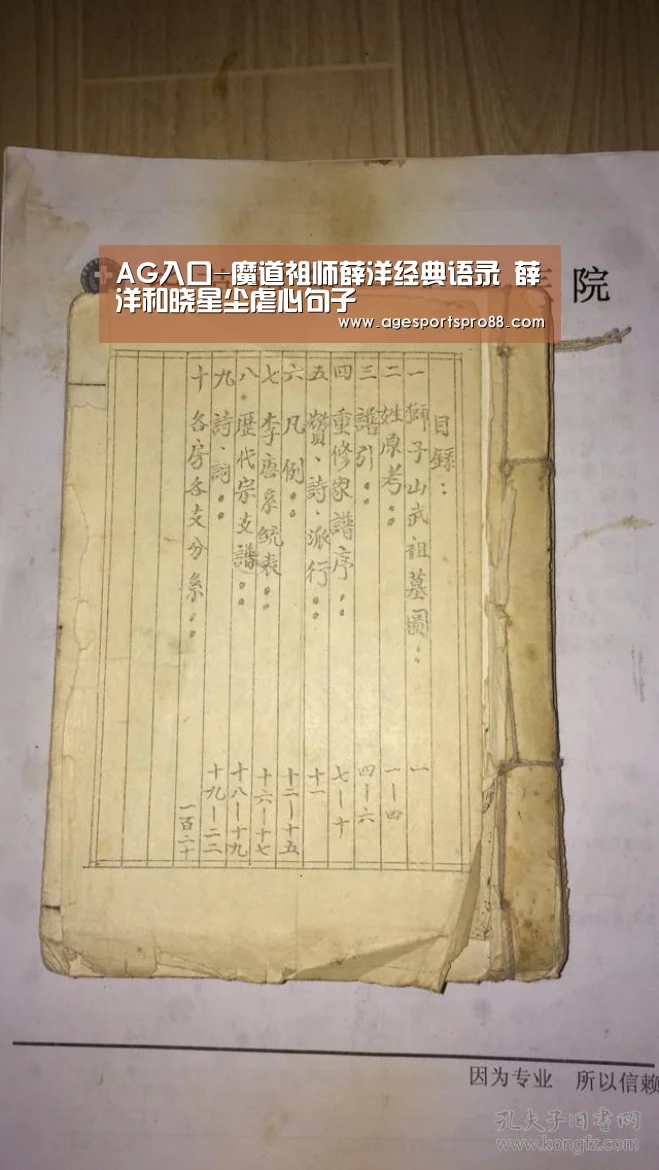 AG入口-魔道祖师薛洋经典语录 薛
洋和晓星尘虐心句子
www.agesportspro88.com
院
目録：
一 獅子山武祖墓圖 一
二 姓原考 一-四
三 譜引 四-六
四 重修家譜序 七-十
五 贊、詩、派行 十一
六 凡例 十二-十五
七 李唐系統表 十六-十七
八 歷代宗支譜 十八-十九
九 詩、詞 十九-二二
十 各房各支分系 一百二十
因为专业 所以信赖
孔夫子旧书网
www.kongfz.com